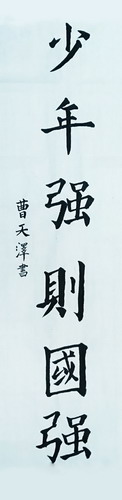 少年强則國强
曹天澤書